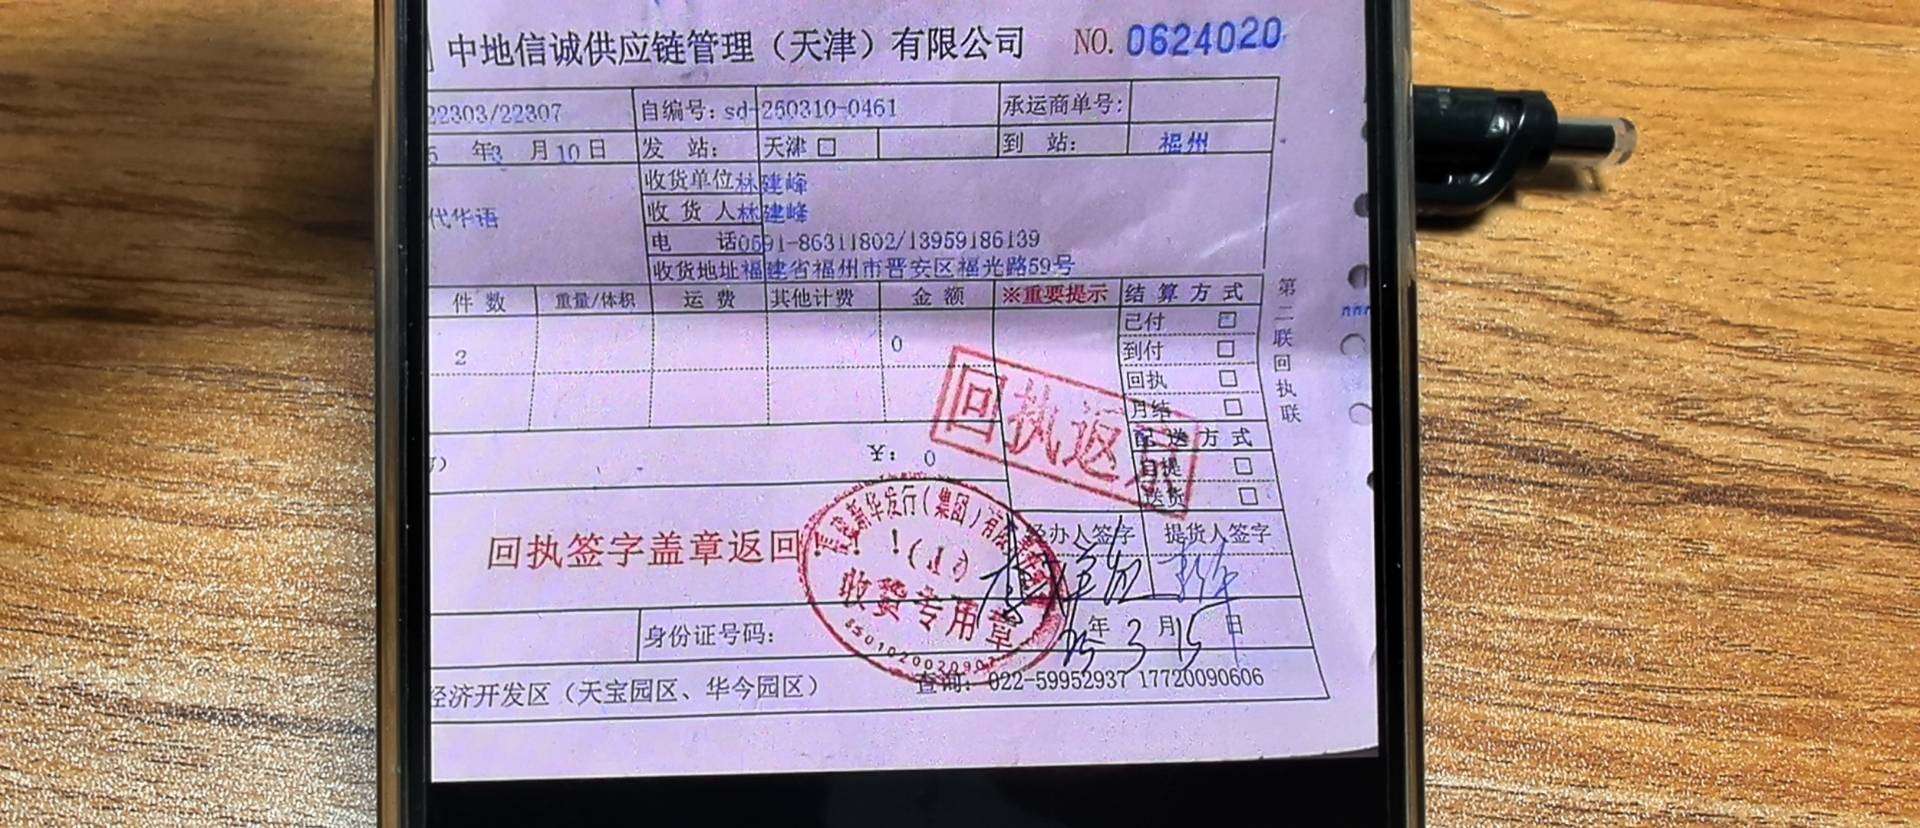 中地信诚供应链管理（天津）有限公司 NO. 0624020
22303/22307 自编号: sd-250310-0461 承运商单号:
5 年3 月10日 发 站: 天津□ 到 站: 福州
收货单位林建峰
代华语 收 货 人林建峰
电 话0591-86311802/13959186139
收货地址福建省福州市晋安区福光路59号
件 数 重量/体积 运 费 其他计费 金 额 ※重要提示 结 算 方 式
已付 □
2 0 到付 □
回执 □
月结 □
配 送 方 式
¥: 0 自提 □
送货 □
第二联回执联
回执返
回执签字盖章返回！！！
新华发行(集团)有限
(1)
收货专用章
经办人签字 提货人签字
身份证号码: 25 年 3 月 15 日
经济开发区（天宝园区、华今园区） 查询: 022-59952937 17720090606